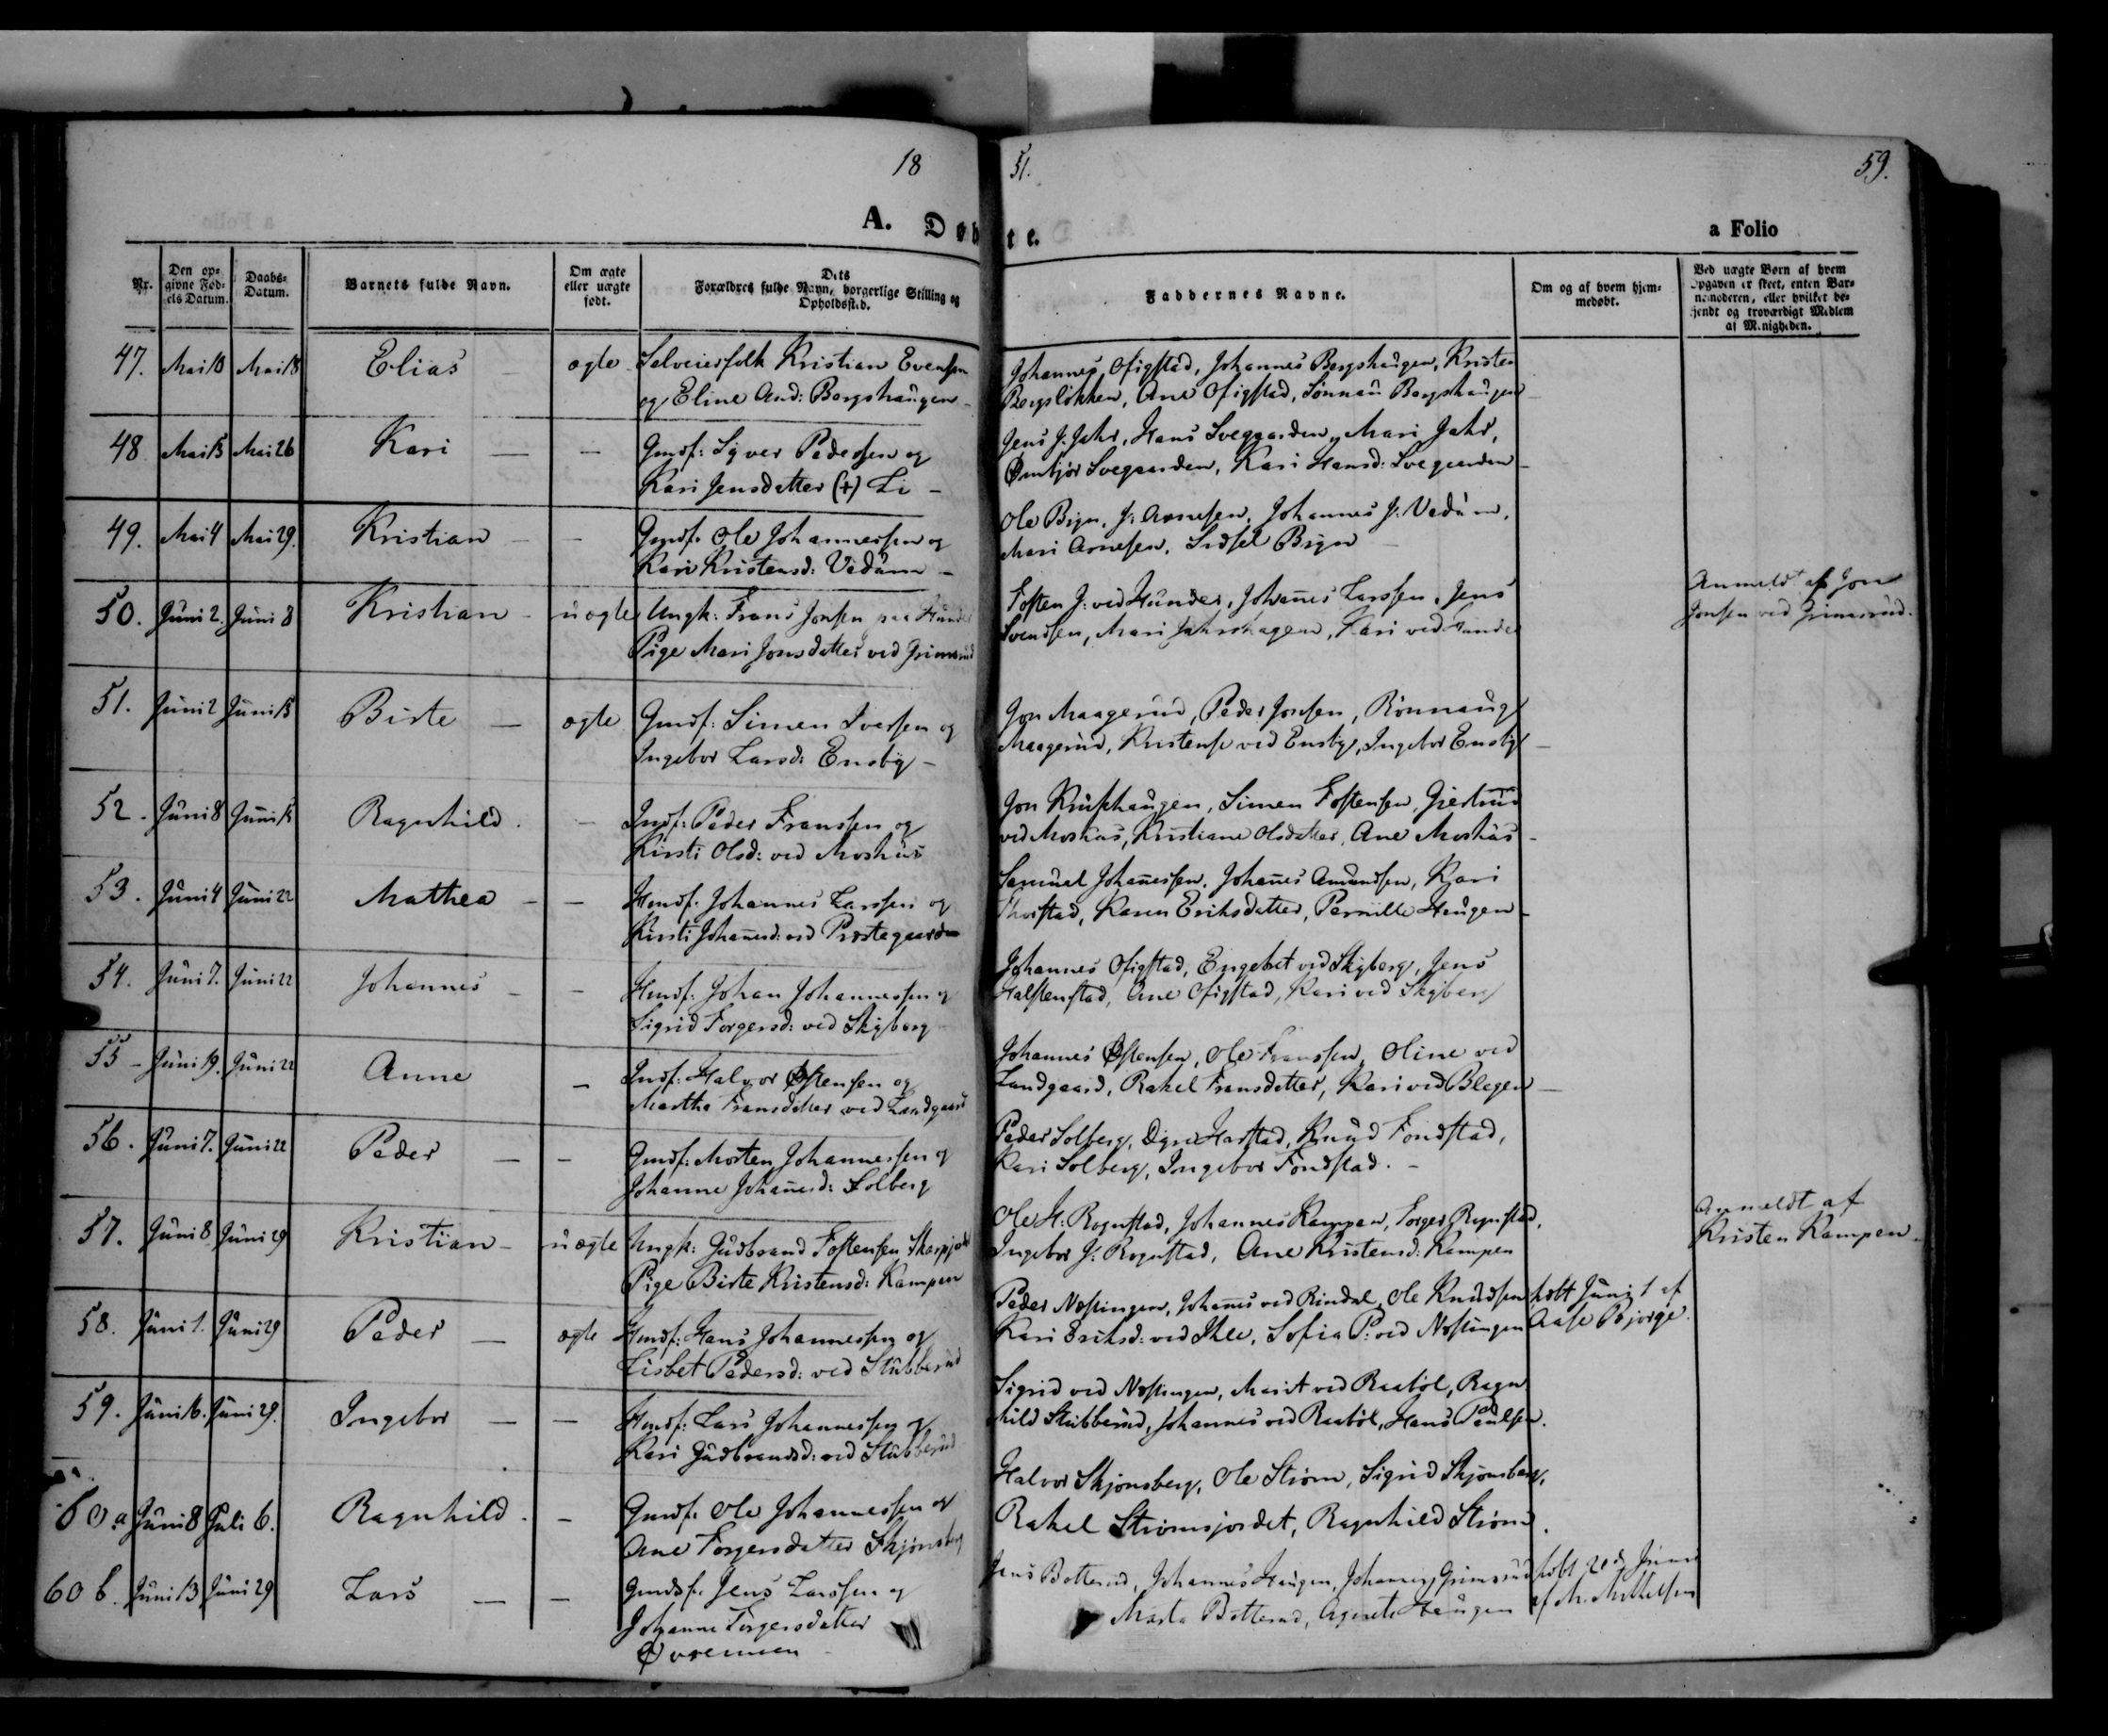 18 51. 59.
A. Døbte. a Folio
Nr. Den opgivne Fødels Datum. Daabs-Datum. Barnets fulde Navn. Om ægte eller uægte født. Dets Forældres fulde Navn, borgerlige Stilling og Opholdssted. Faddernes Navne. Om og af hvem hjemmedøbt. Ved uægte Børn af hvem Opgaven er skeet, enten Barnemoderen, eller hvilket bekjendt og troværdigt Medlem af Menigheden.
47. Mai 10 Mai 18 Elias ægte Selveierfolk Kristian Evensen Johannes Ofigstad, Johannes Bergshaugen, Kristen
og Eline And: Bergshaugen Bergsløkken, Ane Ofigstad, Rønnau Bergshaugen
48 Mai 15 Mai 26 Kari — — Gmdf: Syver Pedersen og Jens J. Jahr, Hans Svegaarden, Mari Jahr,
Kari Jensdatter (+) Li - Svegaarden, Kari Hansd: Svegaarden
49. Mai 4 Mai 29. Kristian — Gmdf. Ole Johannessen og Ole Bign, J: Arnesen, Johannes J: Vedum,
Kari Kristensd: Vedum - Mari Arnesen, Sidsel Bign
50. Juni 2. Juni 8 Kristian uægte Ungk: Frans Jonsen paa Hunder Tosten J: ved Hunder, Johañes Larssen, Jens Anmeldt af Jon
Pige Mari Jonsdatter ved Grimsrud Svendsen, Mari Jahrshagen, Kari ved Hunder Jonsen ved Grimsrud.
51. Juni 2 Juni 15 Birte — ægte Gmdf: Simen Iversen og Jon Maagerud, Peder Jonsen, Rønnaug
Ingebor Larsd: Ensby - Maagerud, Kristense ved Ensby, Ingebor Ensby
52. Juni 8 Juni 15 Ragnhild. — Indf: Peder Franssen og Jon Krushaugen, Simen Tostensen, Gjertrud
Kirsti Olsd: ved Moshus ved Moshus, Kristiane Olsdatter, Ane Moshus
53. Juni 4 Juni 22 Mathea — Hmdf. Johannes Larssen og Samuel Johañessen, Johañes Amundsen, Kari
Kirsti Johañesd: ved Præstegaarden Thorstad, Karen Eriksdatter, Pernille Haugen
54. Juni 7. Juni 22 Johannes — Hmdf. Johan Johannessen og Johannes Ofigstad, Engebret ved Skyberg, Jens
Sigrid Torgersd: ved Skyberg Halstenstad, Ane Ofigstad, Kari ved Skyberg
55 - Juni 19. Juni 22 Anne — Indf: Halvor Østensen og Johannes Østensen, Ole Franssen, Oline ved
Martha Fransdatter ved Landgaard Landgaard, Rakel Fransdatter, Kari ved Blegen
56. Juni 7. Juni 22 Peder — — Gmdf: Morten Johannessen og Peder Solberg, Harstad, Knud Fondstad,
Johanne Johañesd: Solberg Kari Solberg, Ingebor Fondstad. -
57. Juni 8 Juni 29 Kristian uægte Ungk: Gudbrand Tostensen Ole H: Rognstad, Johannes Kampen, Torger Rognstad, Anmeldt af
Pige Birte Kristensd: Kampen Ingebor J: Rognstad, Ane Kristensd: Kampen Kristen Kampen.
58. Juni 1. Juni 29 Peder — ægte Hmdf: Hans Johannessen og Peder Næpingen, Johañes ved Rindal, Ole Knudsen døbt Juni 1 af
Lisbet Pedersd: ved Stubberud Kari Eriksd: ved Ihle, Sofia P: ved Næpingen Aase Bjørge.
59. Juni 16. Juni 29. Ingebor — — Hmdf: Lars Johannessen og Sigrid ved Næpingen, Marit ved Raabøl, Ragn
Kari Gudbrandsd: ved Stubberud hild Stubberud, Johannes ved Raabøl, Hans Paulsen.
60 a Juni 8 Juli 6. Ragnhild. — Gmdf. Ole Johannessen og Halvor Skjønsberg, Ole Strøm, Sigrid Skjønsberg,
Ane Torgersdatter Skjønsberg Rakel Strømsjordet, Ragnhild Strøm.
60 b. Juni 13 Juni 29 Lars — — Gmdsf. Jens Larssen og Jens Botterud, Johannes Haugen, Johannes Grimsrud døbt 20d Juni
Johanne Torgersdatter Marta Botterud, Agnete Haugen af M. Mikkelsen